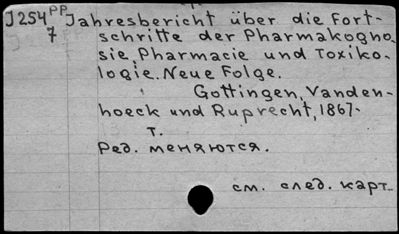 J254 PP Jahresbericht über die Fort-
7 schritte der Pharmakogno-
sie, Pharmacie und Toxiko-
logie. Neue Folge.
Gottingen, Vanden-
hoeck und Ruprecht, 1867-
т.
Ред. меняются.
см. след. карт.